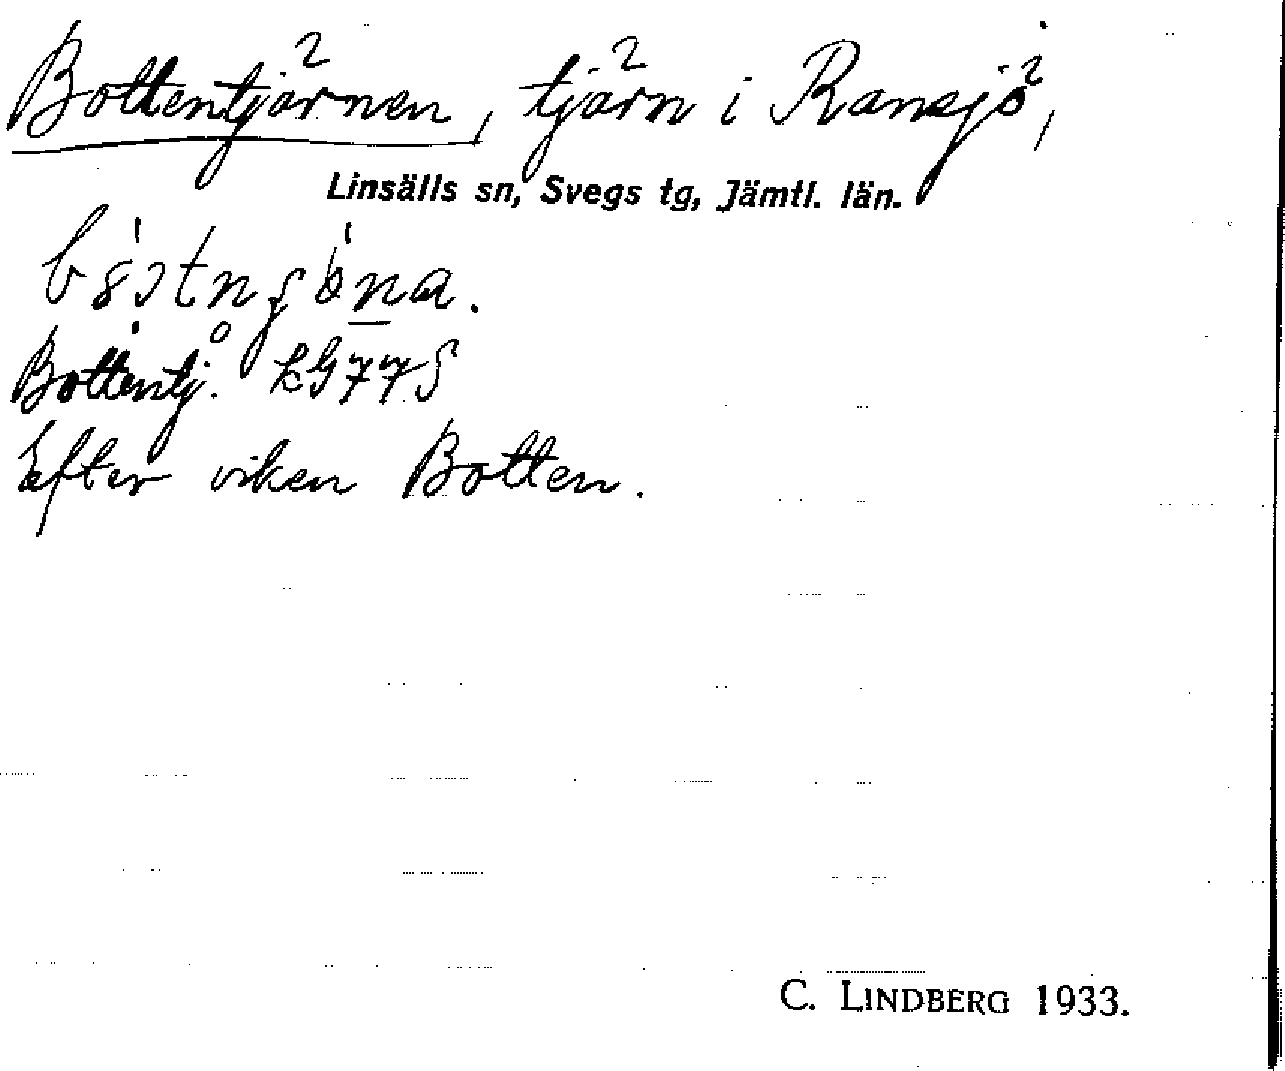 Bottentjärnen, tjärn i Ransjö,
Linsälls sn, Svegs tg, Jämtl. län.
Bottentj.
Efter viken Botten.
C. LINDBERG 1933.